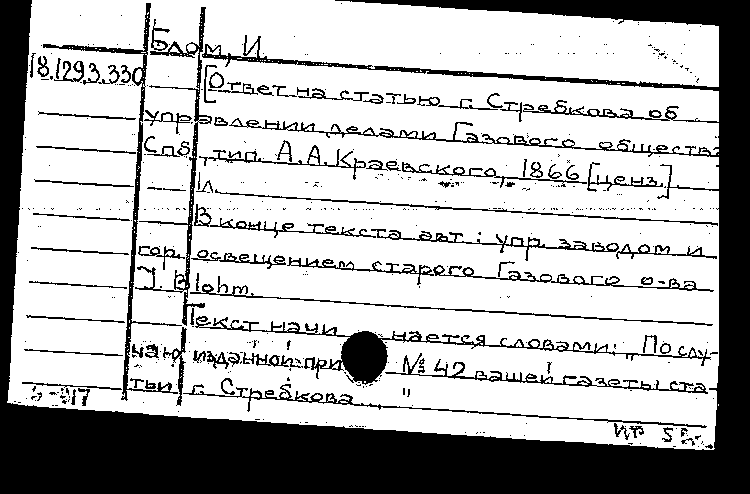 Блом, И.
18.129.3.330
[Ответ на статью г. Стребкова об
управлении делами Газового обществ
Спб., тип. А.А. Краевского, 1866 [ценз.].
1л.
В конце текста авт: упр. заводом и
гор. освещением старого Газового о-ва
J. Blohm.
Текст начинается словами: „По слу-
чаю изданной при № 42 вашей газеты ста-
тьи г. Стребкова..."